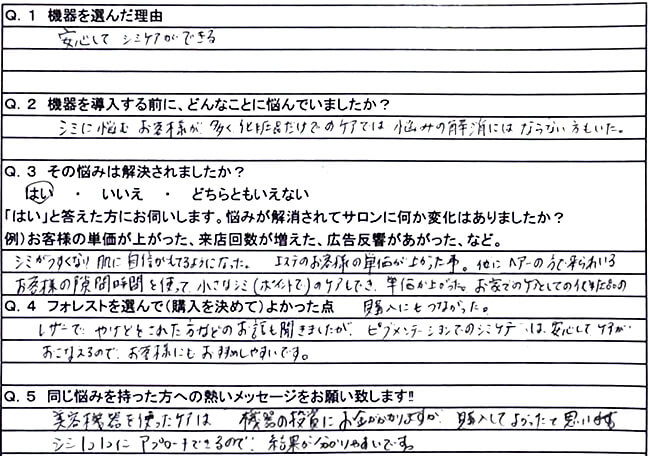 Q. 1 機器を選んだ理由
安心して シミケアができる
Q. 2 機器を導入する前に、どんなことに悩んでいましたか？
シミに悩む お客様が 多く 化粧品だけでのケアでは 悩みの解消には ならない方もいた。
Q. 3 その悩みは解決されましたか？
はい ・ いいえ ・ どちらともいえない
「はい」と答えた方にお伺いします。悩みが解消されてサロンに何か変化はありましたか？
例）お客様の単価が上がった、来店回数が増えた、広告反響があがった、など。
シミがうすくなり 肌に自信がもてるようになった。 エステのお客様の単価が上がった事。他に ヘアーの方で来られいる
お客様の隙間時間を使って 小さなシミ（ポイントで）のケアもでき、単価が上がった。お家でのケアとしての化粧品の
購入にもつながった。
Q. 4 フォレストを選んで（購入を決めて）よかった点
レーザーで やけどをされた方などのお話も聞きましたが、ピグメンテーションでのシミケアは、安心して ケアが
おこなえるので、お客様にも おすすめしやすいです。
Q. 5 同じ悩みを持った方への熱いメッセージをお願い致します!!
美容機器を使ったケアは 機器の投資に お金がかかりますが 購入して よかったと 思います
シミ1つ1つに アプローチできるので、結果が分かりやすいです。